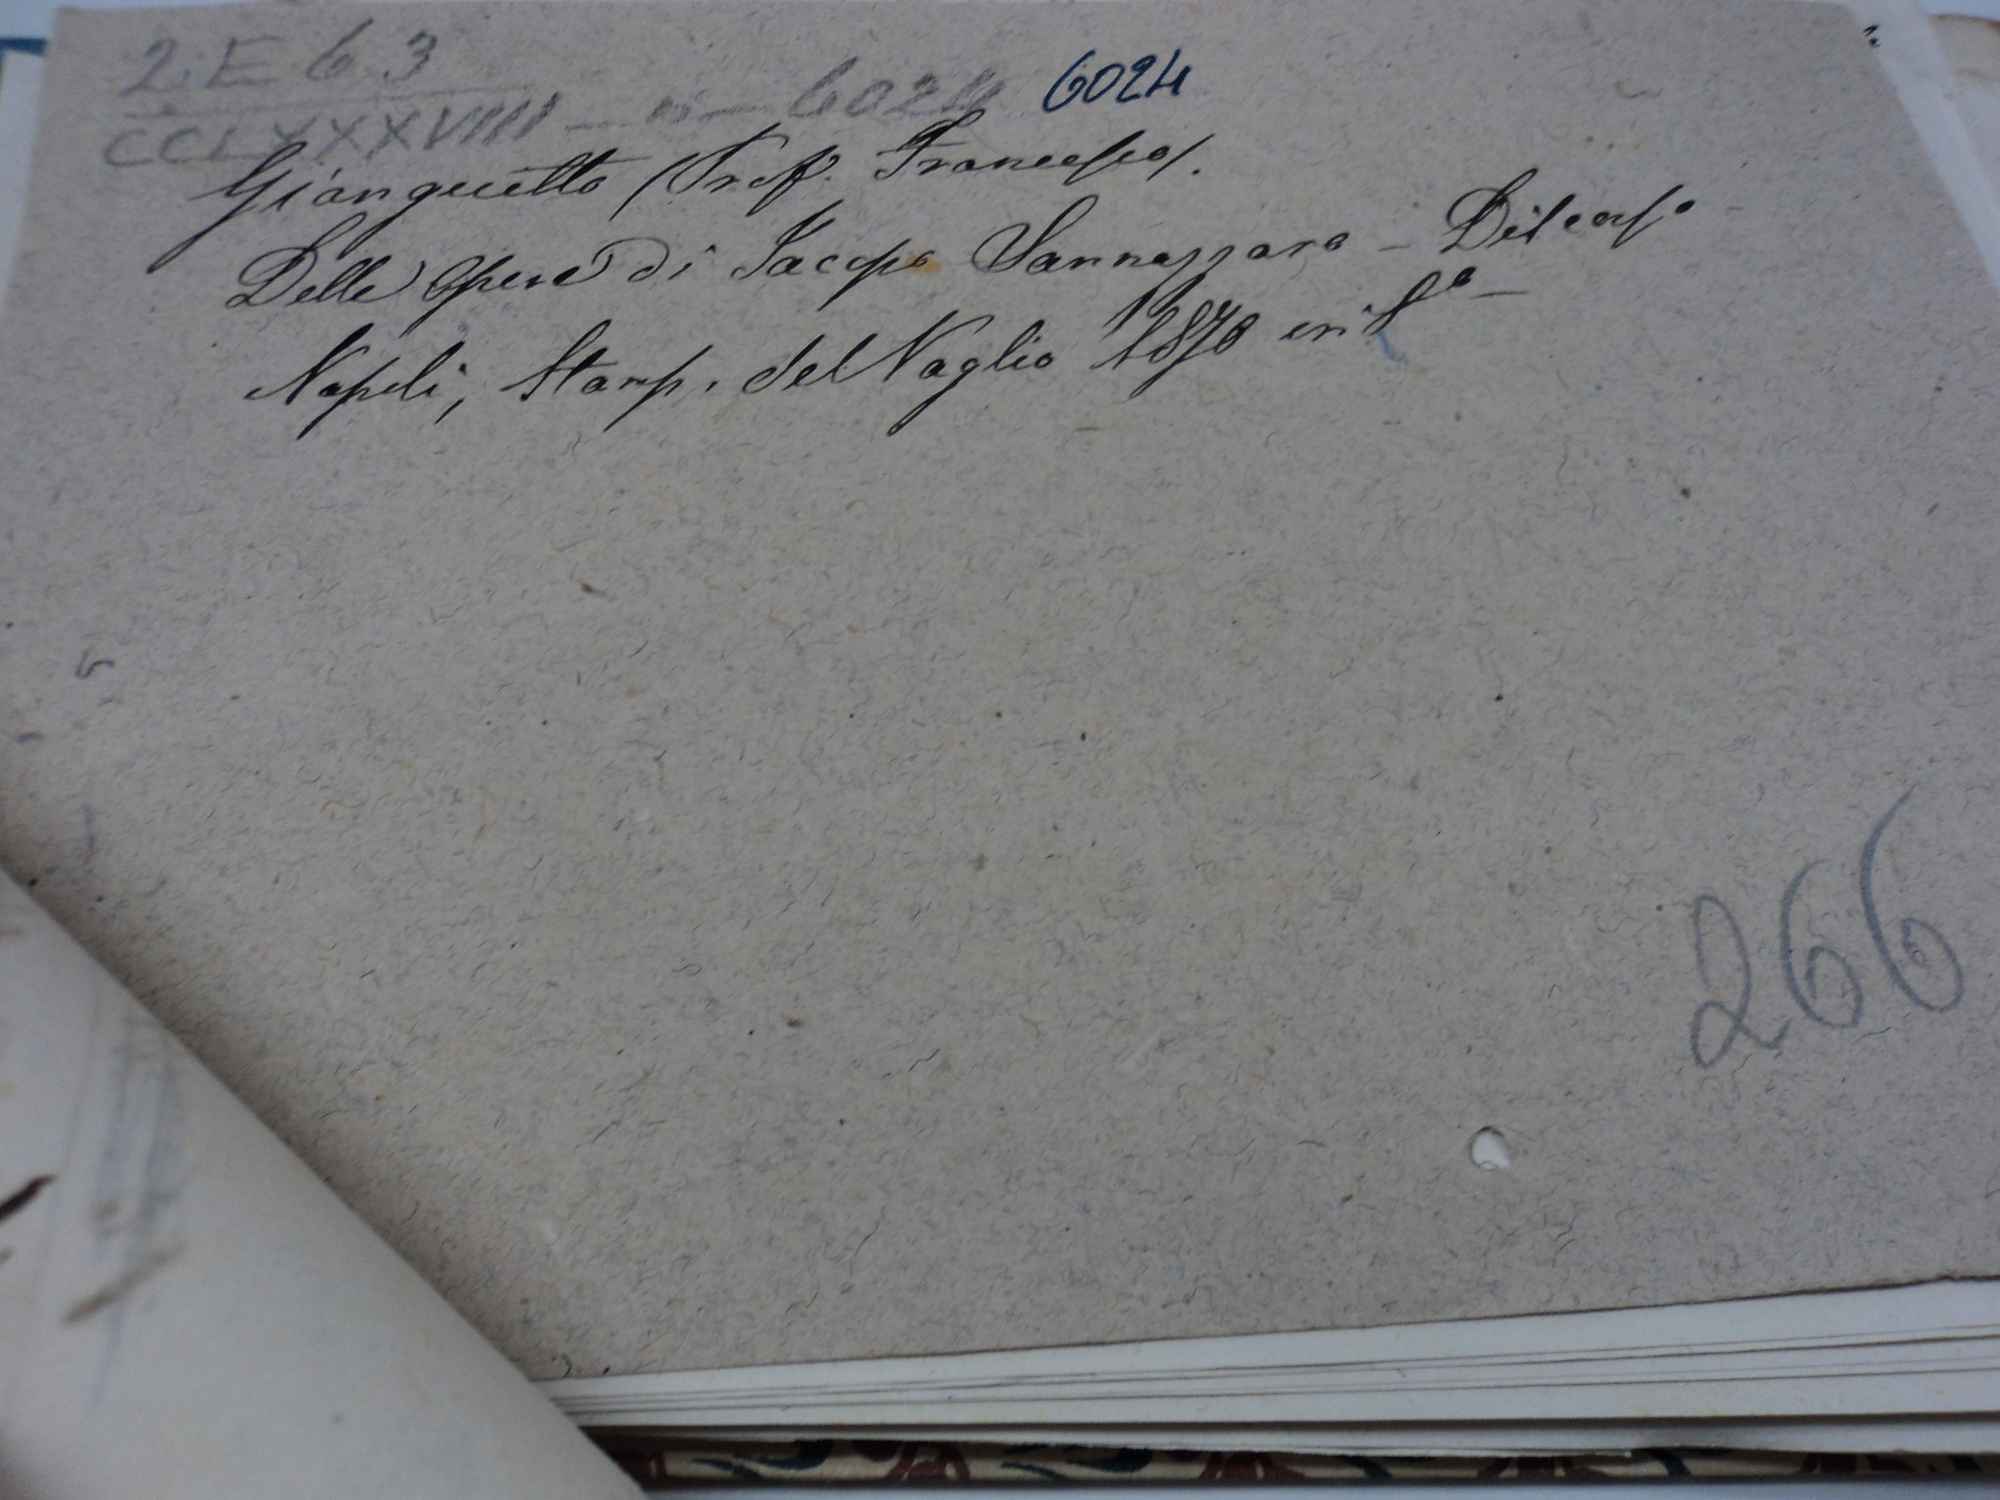 2. E 6 3
CCLXXXVIIII — n — 6024 6024
Gianquitto (Prof. Francesco).
Delle Opere di Jacopo Sannazzaro – Discorso –
Napoli, Stamp. del Vaglio 1870 in 8° –
266